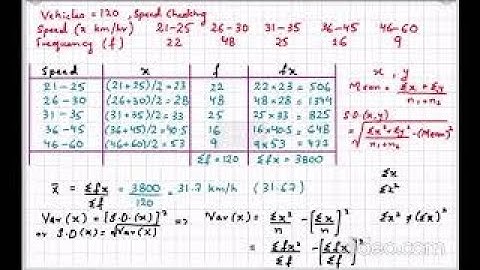 Vehicles = 120 , Speed Checking
Speed (x km/hr) 21-25 26-30 31-35 36-45 46-60
Frequency (f) 22 48 25 16 9
Speed x f fx
21-25 (21+25)/2 = 23 22 22×23 = 506
26-30 (26+30)/2 = 28 48 48×28 = 1344
31-35 (31+35)/2 = 33 25 25×33 = 825
36-45 (36+45)/2 = 40.5 16 16×40.5 = 648
46-60 (46+60)/2 = 53 9 9×53 = 477
Σf = 120 Σfx = 3800
x , y
Mean = Σx + Σy / n₁ + n₂
S.D (x,y)
√ Σx² + Σy² / n₁ + n₂ - (Mean)²
x̄ = Σfx / Σf = 3800 / 120 = 31.7 km/h (31.67)
Σx
Σx²
Var(x) = [S.D.(x)]² => Var(x) = Σx² / n - [Σx / n]² Σx² ≠ (Σx)²
or S.D(x) = √Var(x) = Σfx² / Σf - [Σfx / Σf]²